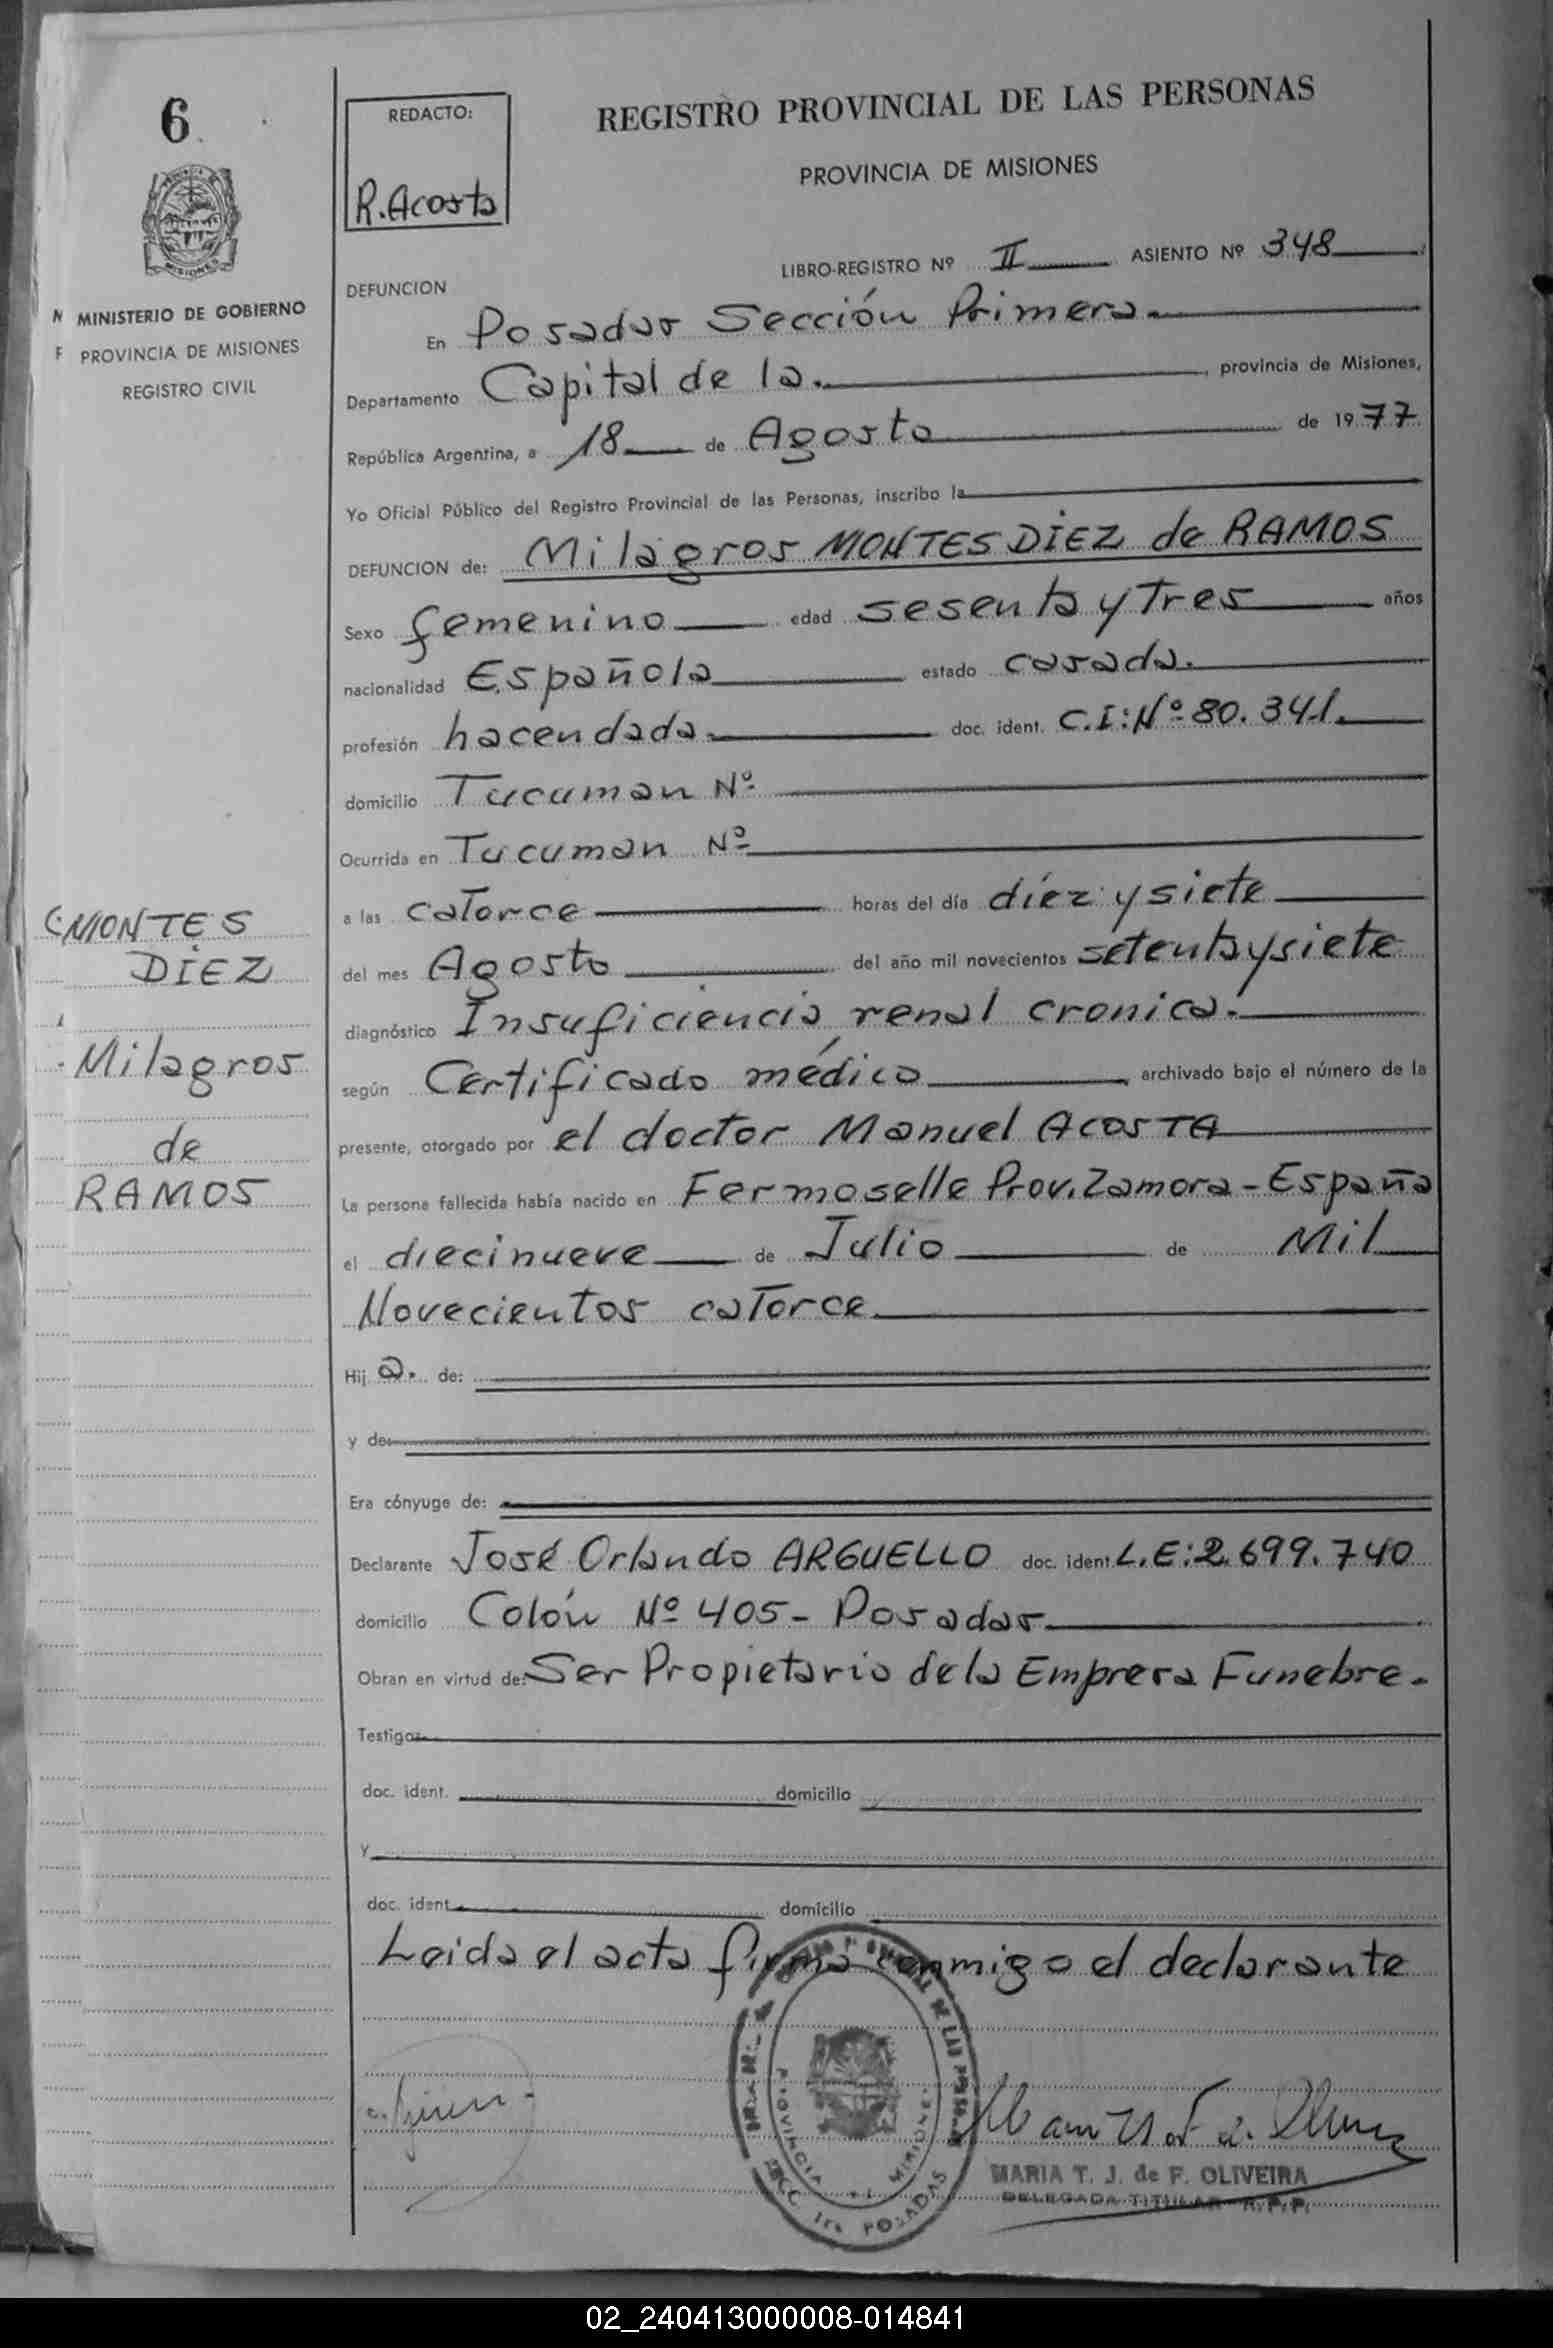 6
REDACTO:
R. Acosta
REGISTRO PROVINCIAL DE LAS PERSONAS
PROVINCIA DE MISIONES
MISIONES
MINISTERIO DE GOBIERNO
PROVINCIA DE MISIONES
REGISTRO CIVIL
LIBRO-REGISTRO Nº II ASIENTO Nº 348
DEFUNCION
En Posadas Sección Primera.
Departamento Capital de la. , provincia de Misiones,
República Argentina, a 18 de Agosto de 1977
Yo Oficial Público del Registro Provincial de las Personas, inscribo la
DEFUNCION de: Milagros MONTES DIEZ de RAMOS
Sexo femenino edad sesenta y Tres años
nacionalidad Española estado casada.
profesión hacendada doc. ident. C.I: Nº 80.341.
domicilio Tucuman Nº
Ocurrida en Tucuman Nº
a las caTorce horas del día díez y siete
del mes Agosto del año mil novecientos setenta y siete
diagnóstico Insuficiencia renal cronica.
según Certificado médico , archivado bajo el número de la
presente, otorgado por el doctor Manuel ACOSTA
La persona fallecida había nacido en Fermoselle Prov. Zamora - España
el diecinueve de Julio de Mil
Novecientos caTorce
Hij a. de:
y de:
Era cónyuge de:
Declarante José Orlando ARGUELLO doc. ident. L.E: 2.699.740
domicilio Colón Nº 405 - Posadas
Obran en virtud de: Ser Propietario de la Empresa Funebre.
Testigos
doc. ident. domicilio
y
doc. ident. domicilio
Leida el acta firma conmigo el declarante
MONTES
DIEZ
Milagros
de
RAMOS
PROVINCIA MISIONES
SECC 1ra POSADAS
MARIA T. J. de F. OLIVEIRA
DELEGADA TITULAR R.P.P.
02_240413000008-014841